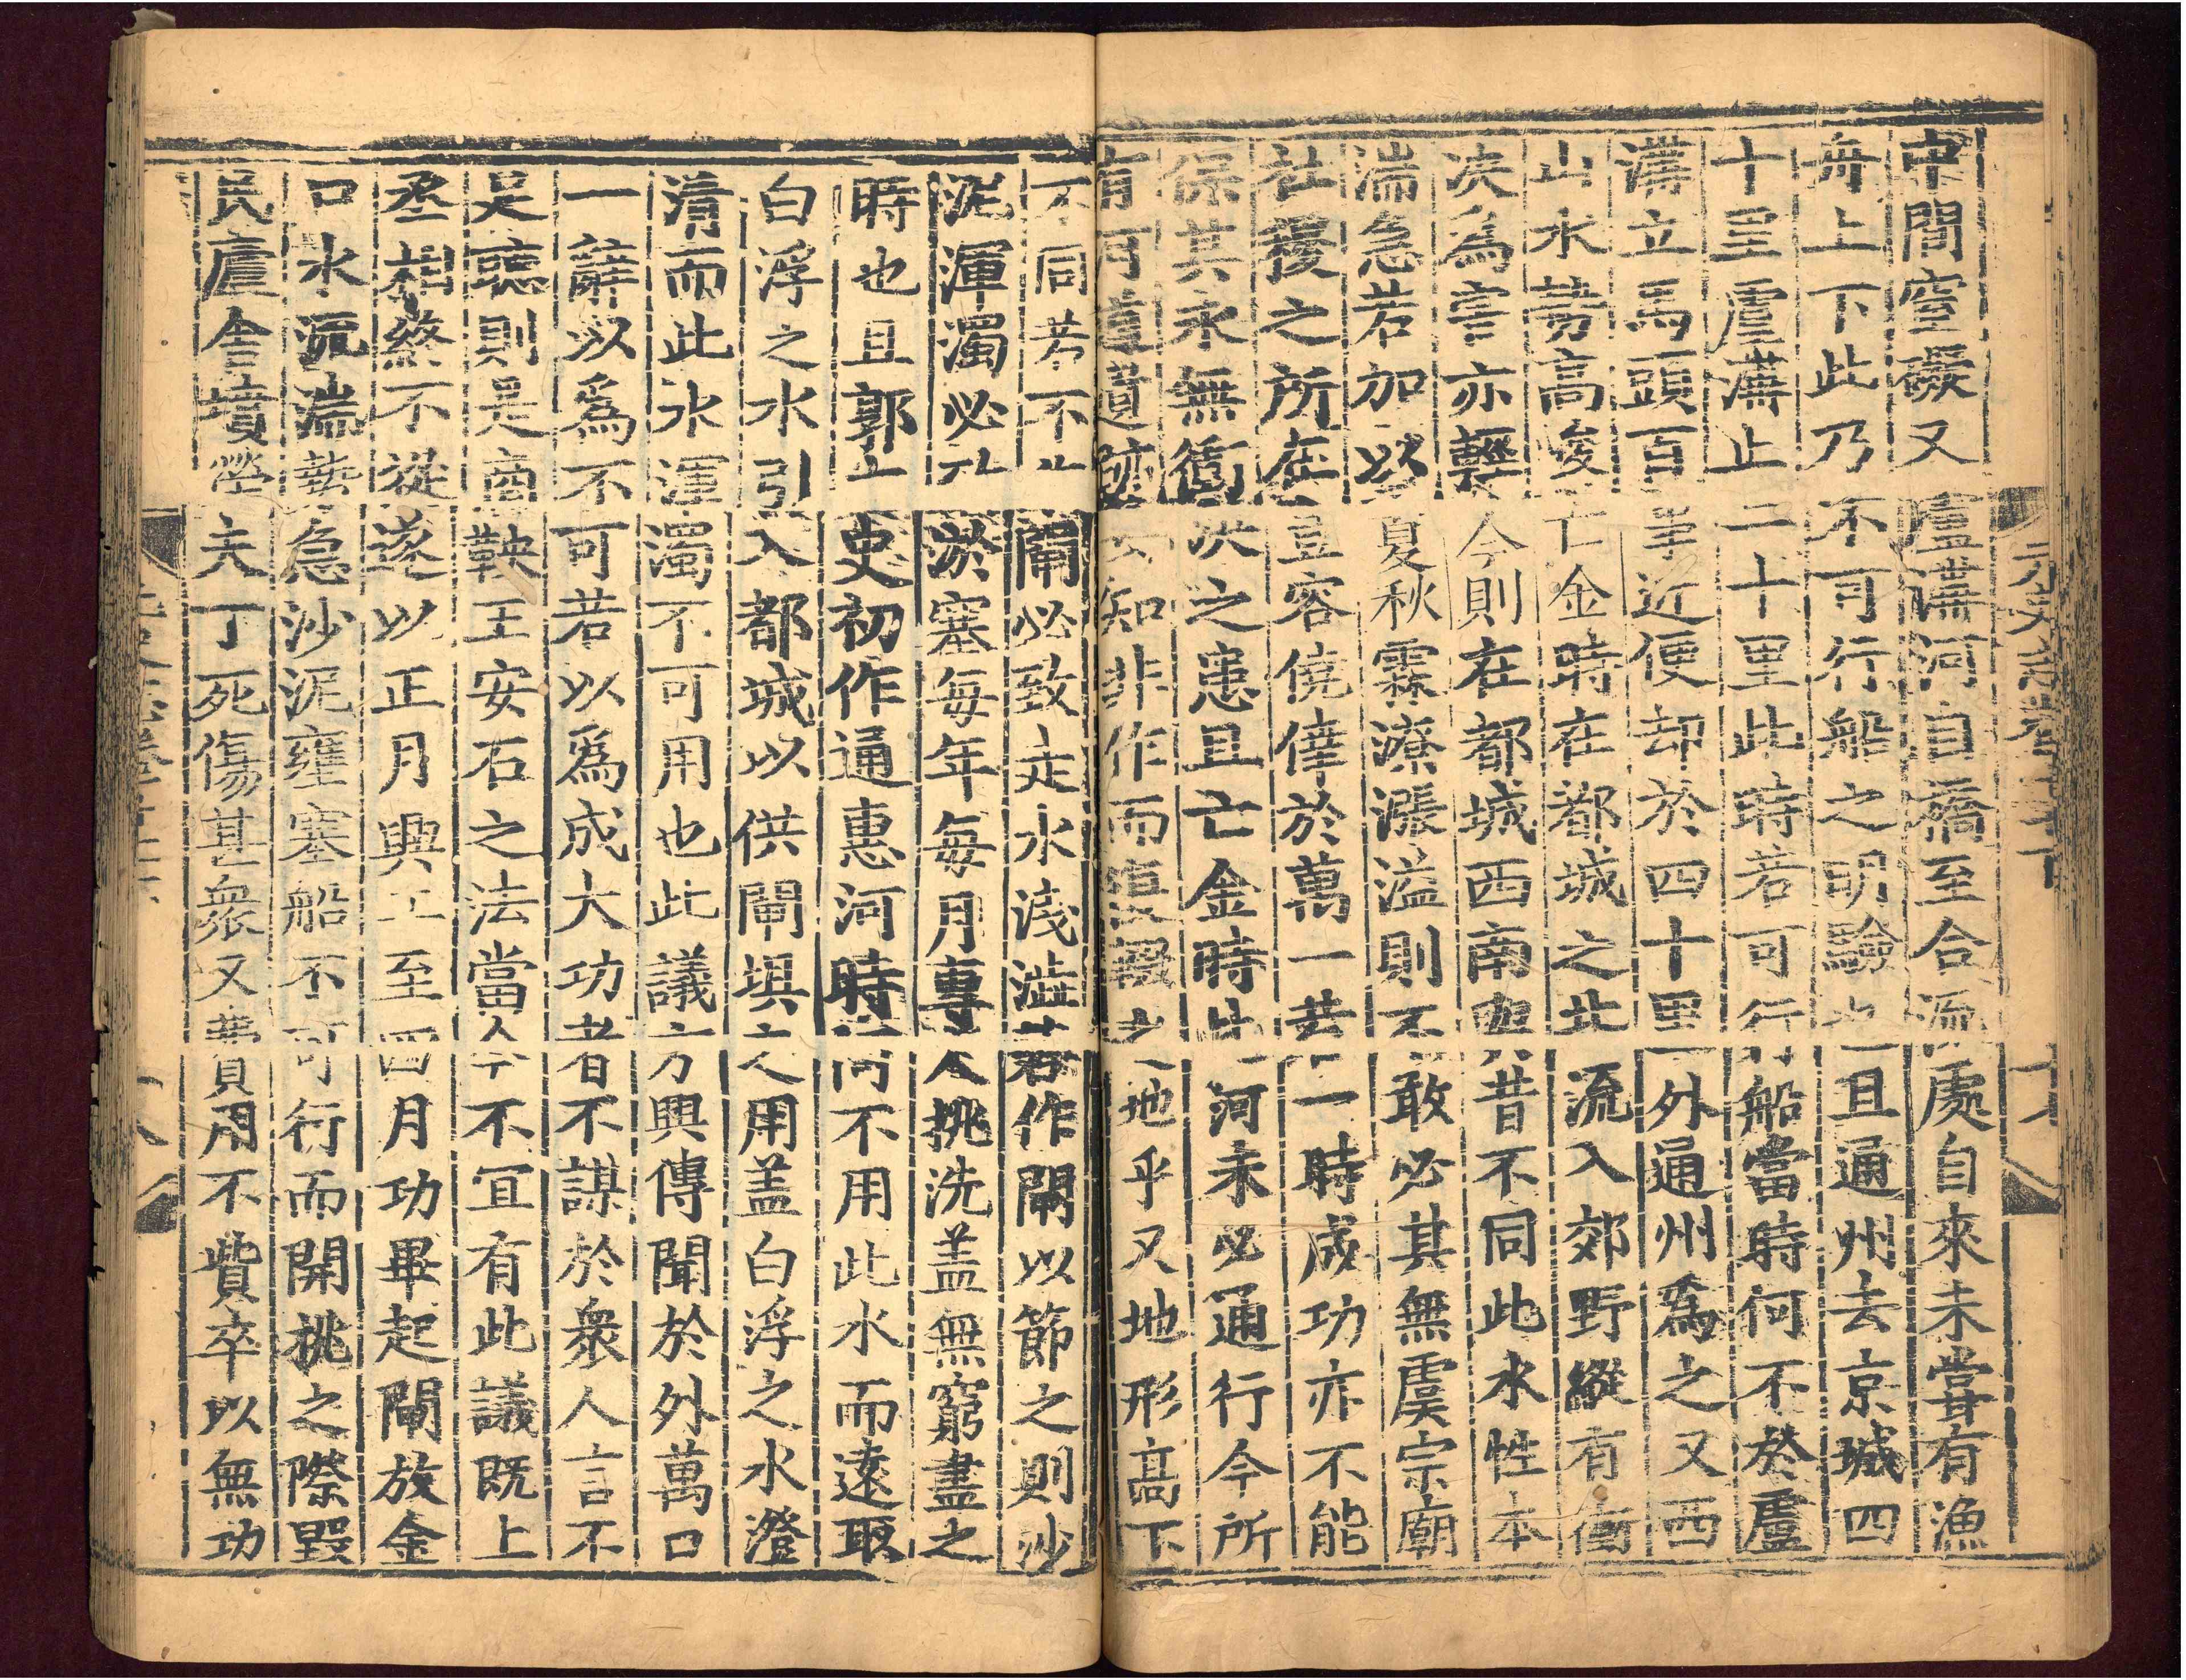 中間窒礙又盧溝河自橋至合流處自來未嘗有漁
舟上下此乃不可行船之明驗也且通州去京城四
十里盧溝止二十里此時若可行船當時何不於盧
溝立馬頭百事近便却於四十里外通州爲之又西
山水勢高峻亡金時在都城之北流入郊野縱有衝
决爲害亦輕今則在都城西南與昔不同此水性本
湍急若加以夏秋霖潦漲溢則不敢必其無虞宗廟
社稷之所在豈容僥倖於萬一若一時成功亦不能
保其永無衝決之患且亡金時此河未必通行今所
有河道遺跡安知非作而復輟之地乎又地形高下
不同若不作閘必致走水淺澁若作閘以節之則沙
泥渾濁必致淤塞每年每月專人挑洗盖無窮盡之
時也且郭太史初作通惠河時何不用此水而遠取
白浮之水引入都城以供閘垻之用盖白浮之水澄
清而此水渾濁不可用也此議方興傳聞於外萬口
一辭以爲不可若以爲成大功者不謀於衆人言不
足聽則是商鞅王安石之法當今不宜有此議既上
丞相終不從遂以正月興工至四月功畢起閘放金
口水流湍勢急沙泥壅塞船不可行而開挑之際毀
民廬舍墳塋夫丁死傷甚衆又費用不貲卒以無功